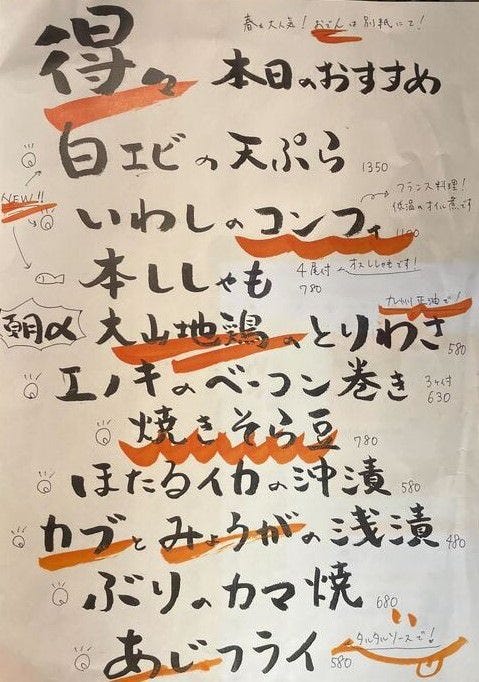 春も大人気！おでんは別紙にて！
得々 本日のおすすめ
白エビの天ぷら 1350
NEW!!
フランス料理！
低温のオイル煮です
いわしのコンフィ 1100
本ししゃも 4尾付 オスししゃもです！
780
九州醤油で！
朝〆 大山地鶏のとりわさ 580
エノキのベーコン巻き 3ケ付
630
焼きそら豆 780
ほたるイカの沖漬 580
カブとみょうがの浅漬 480
ぶりのカマ焼 680
あじフライ 580 タルタルソースで！